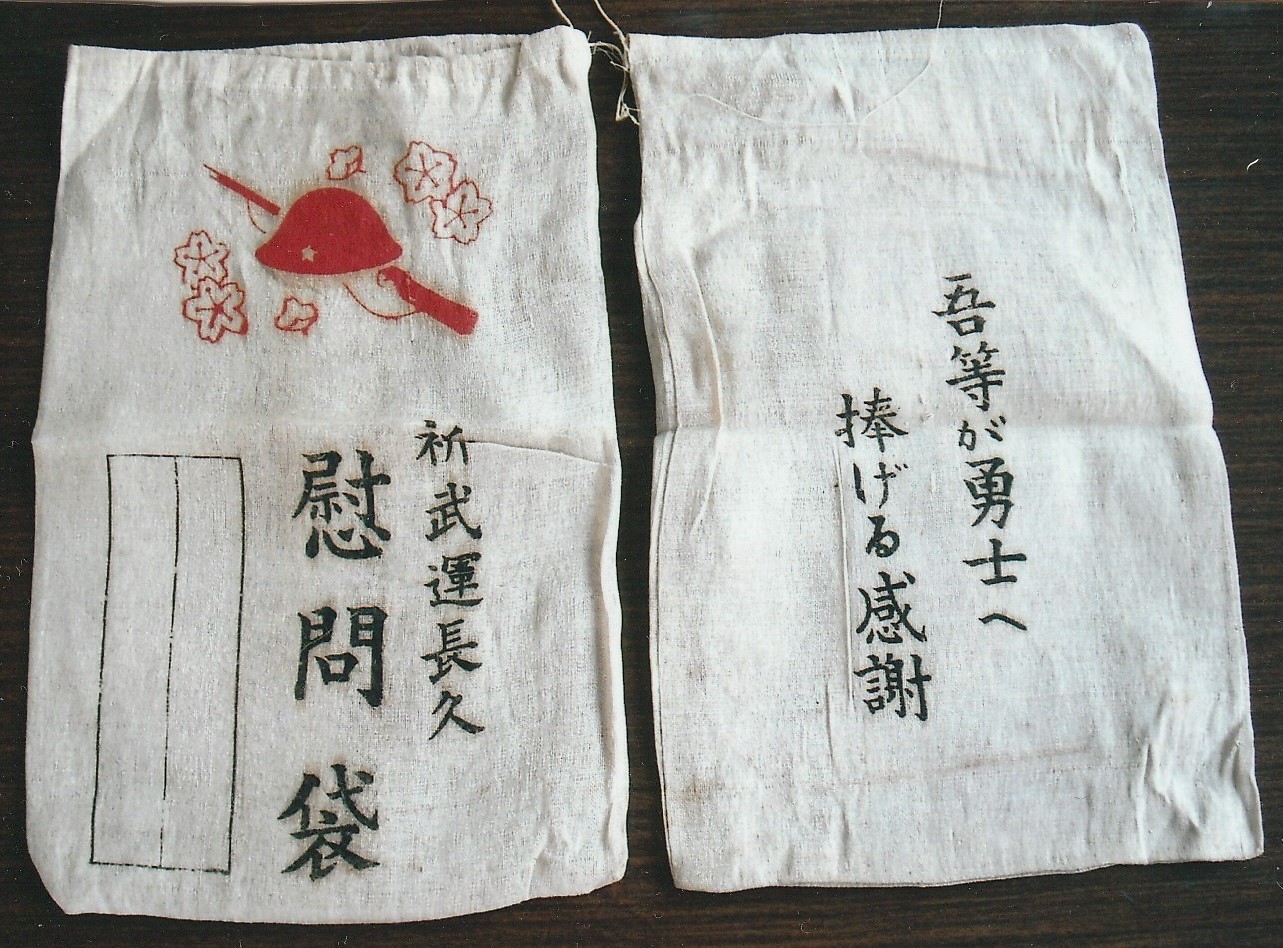 祈武運長久
慰問袋
吾等が勇士へ
捧げる感謝